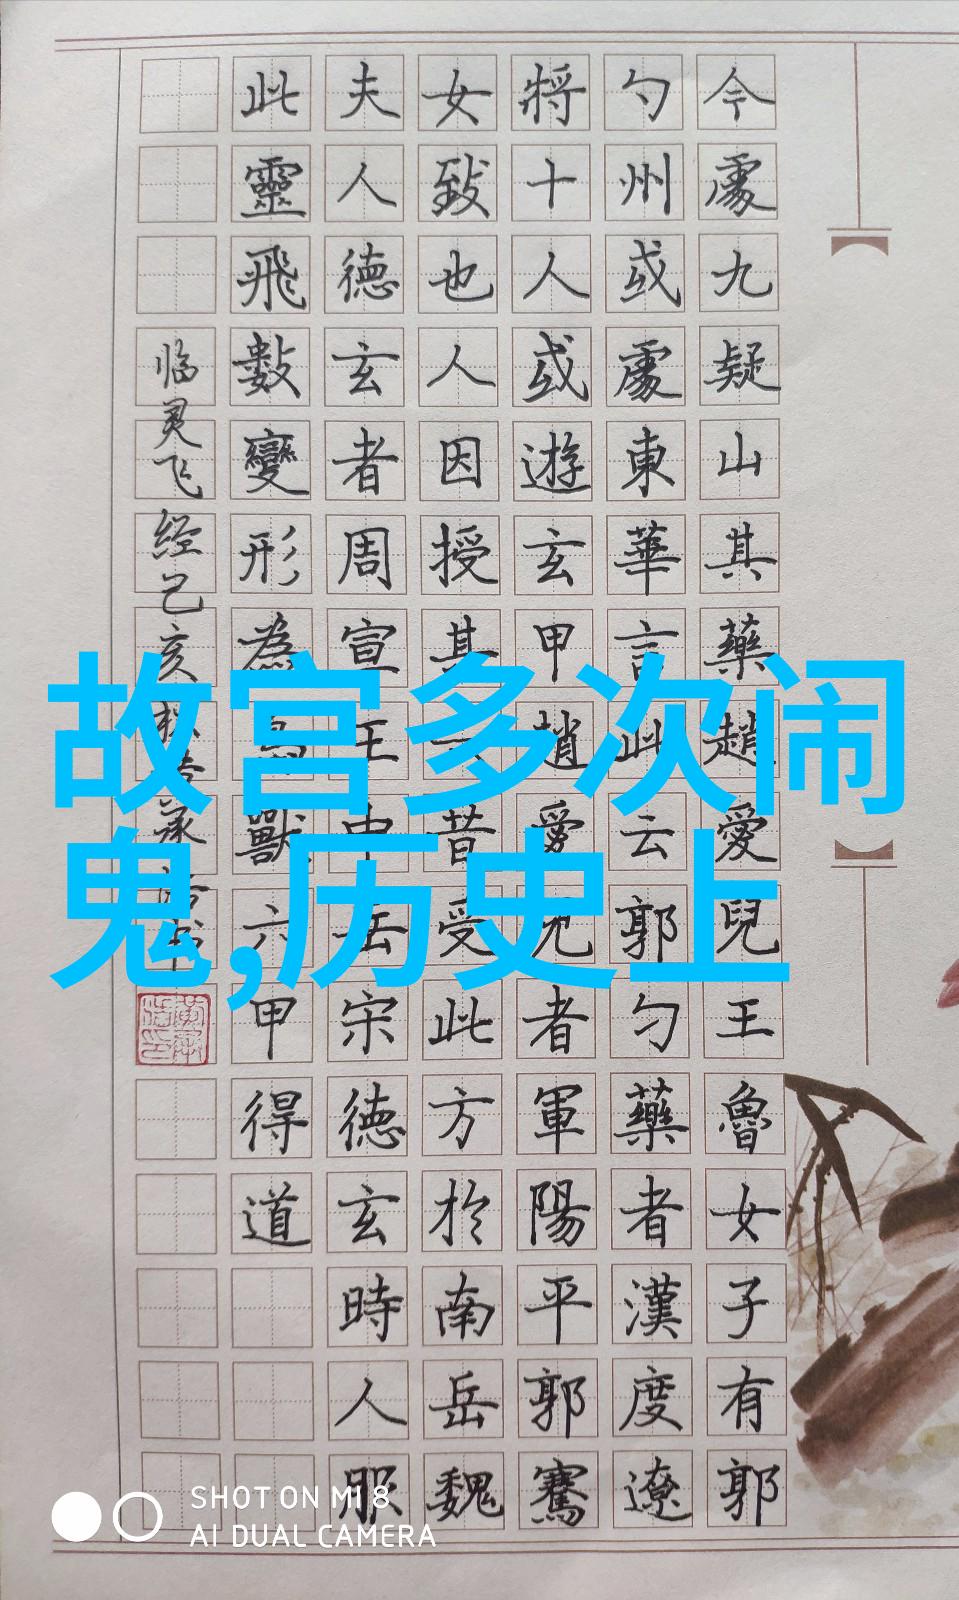 今處九疑山其藥趙愛兒王魯女子有郭
勺州或處東華言此云郭勺藥者漢度遼
將十人或遊玄甲趙愛兒者軍陽平郭騫
女致也人因授其一昔受此方於南岳魏
夫人德玄者周宣王中岳宋德玄時人服
此靈飛數變形為鳥獸六甲得道
临灵飞经己亥
故宫多次闹
鬼,历史上
SHOT ON MI 8
AI DUAL CAMERA